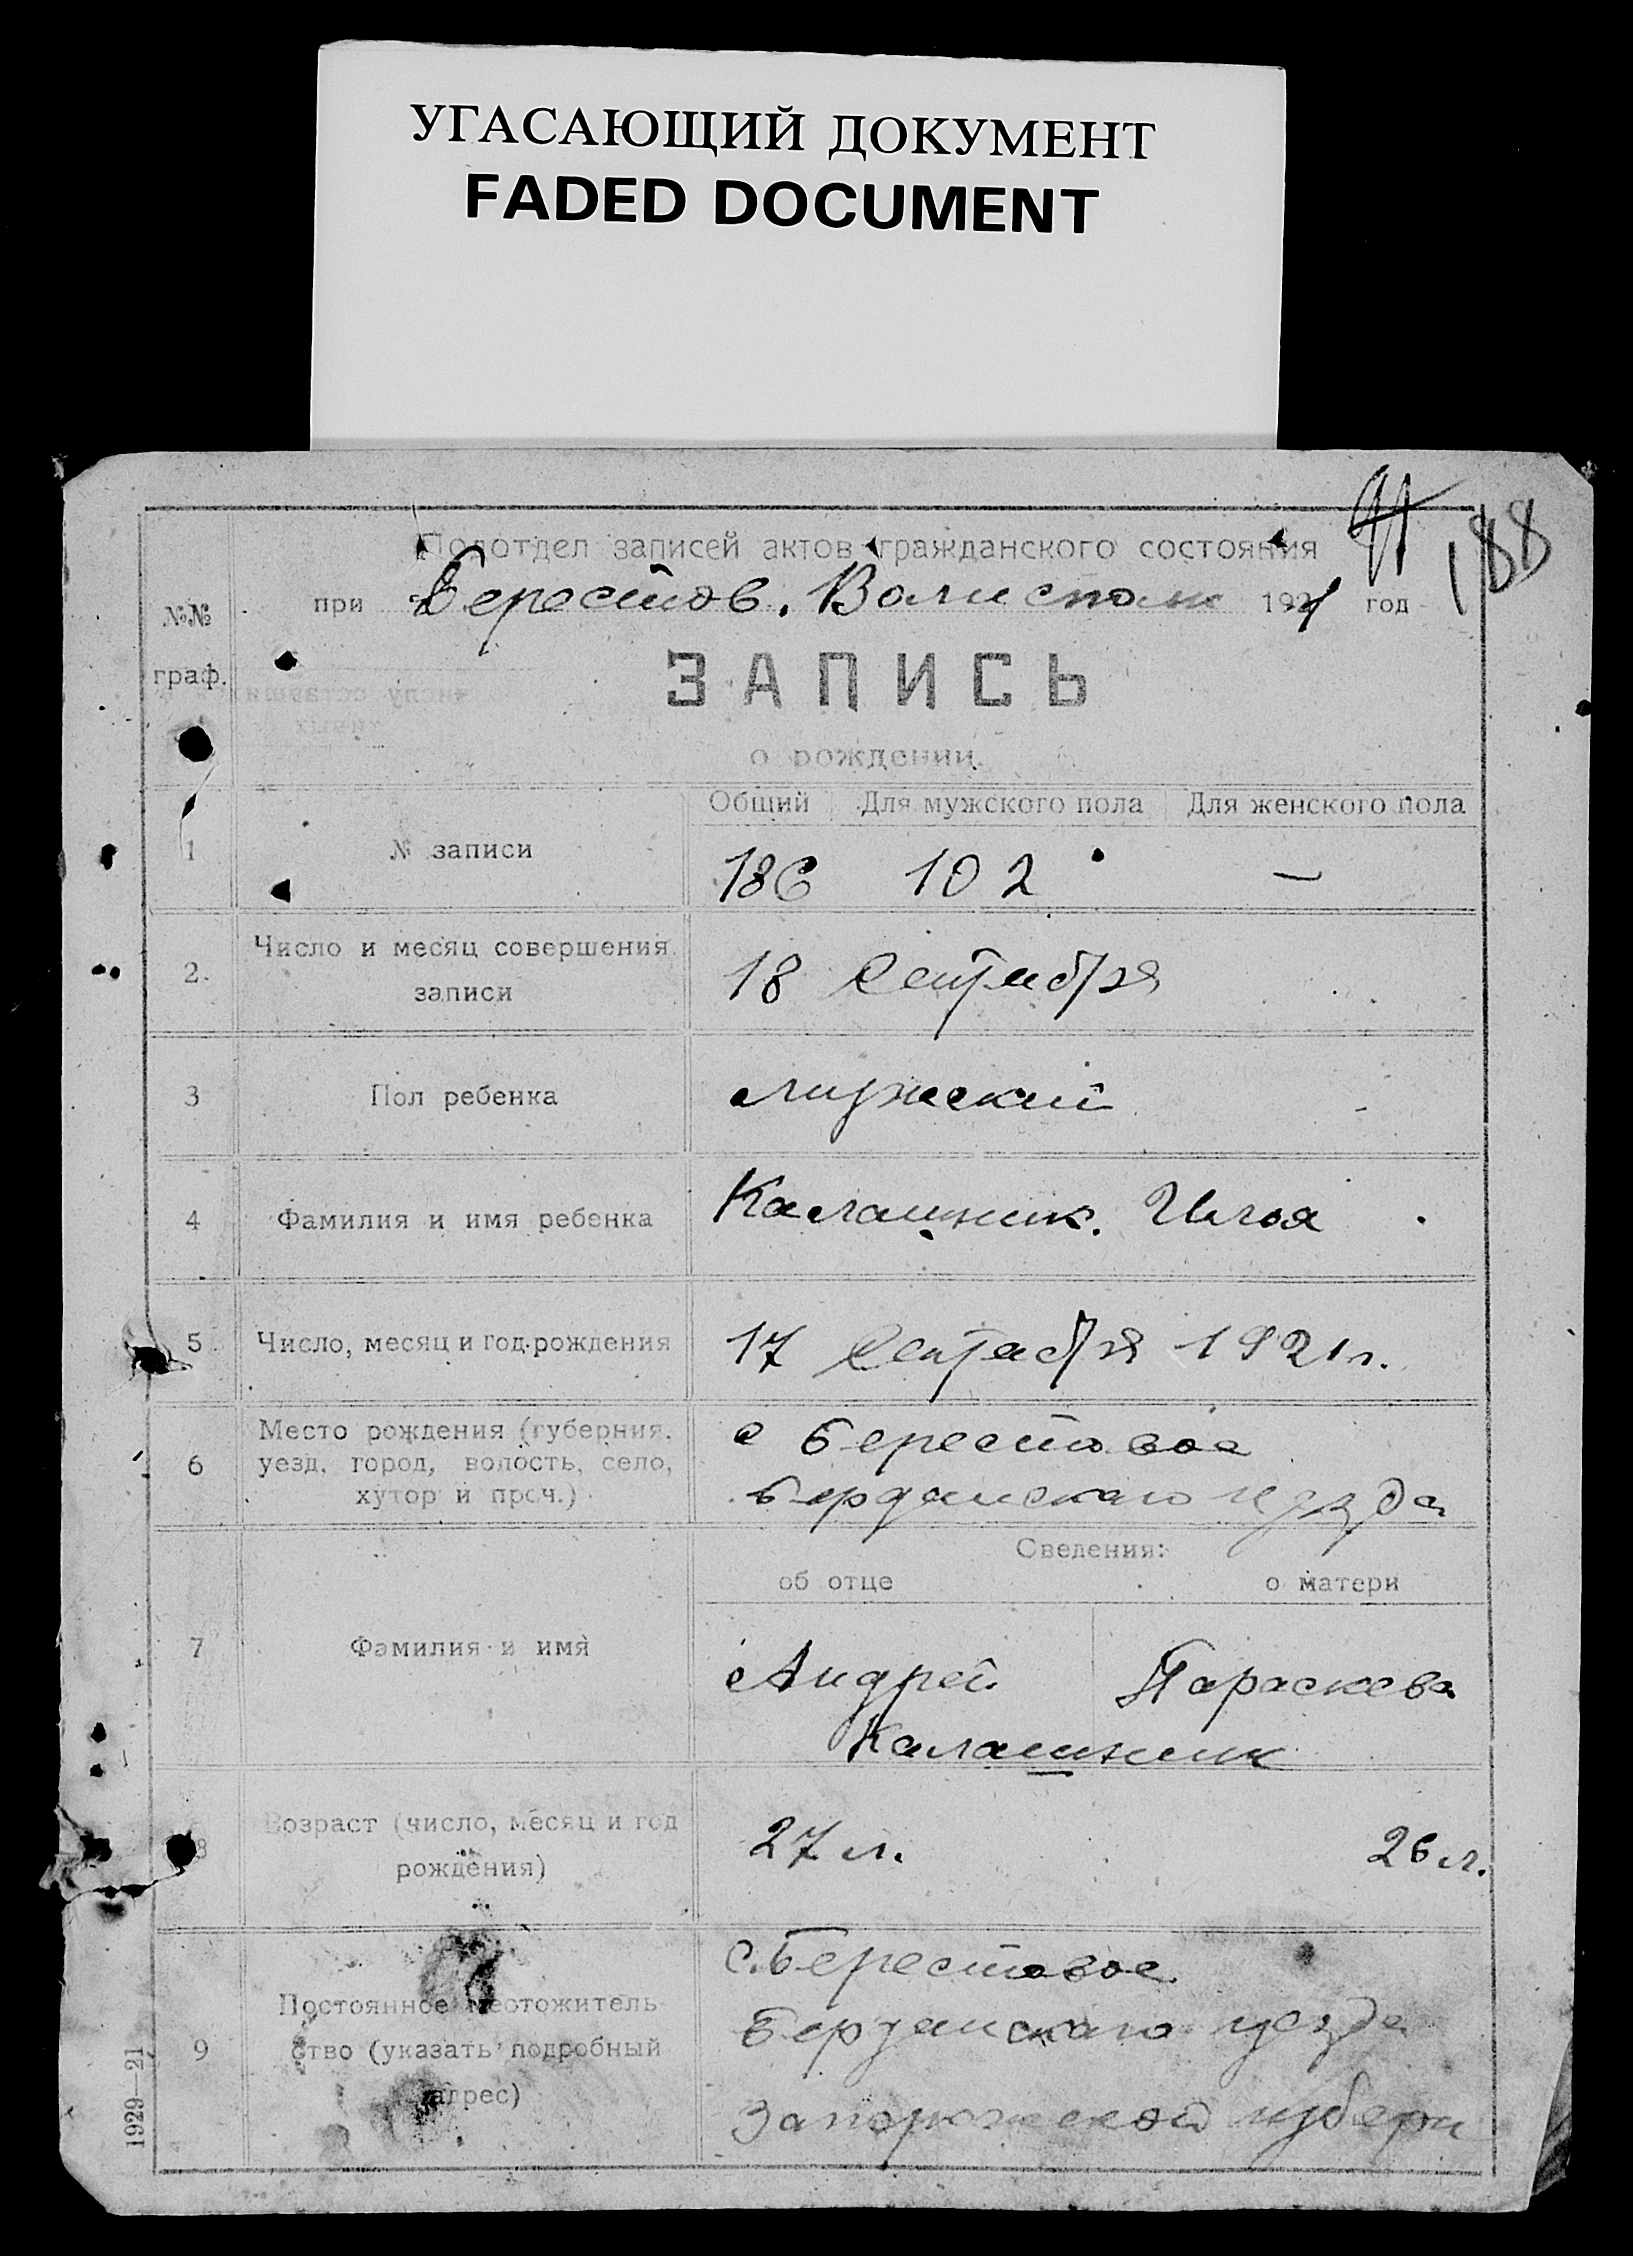 УГАСАЮЩИЙ ДОКУМЕНТ
FADED DOCUMENT
188
Подотдел записей актов гражданского состояния
при Берестов. Волисполк 1921 год
№№ граф.
ЗАПИСЬ
о рождении.
Общий Для мужского пола Для женского пола
1 № записи 186 102 —
2. Число и месяц совершения записи 18 Сентября
3 Пол ребенка мужский
4 Фамилия и имя ребенка Калашник. Илья
5 Число, месяц и год рождения 17 Сентября 1921 г.
6 Место рождения (губерния, уезд, город, волость, село, хутор и проч.) с Берестовое
Бердянскаго уезда
Сведения:
об отце о матери
7 Фамилия и имя Андрей Параскева
Калашник
8 Возраст (число, месяц и год рождения) 27 л. 26 л.
9 Постоянное местожительство (указать подробный адрес) с. Берестовое
Бердянскаго уезда
Запорожской губерн
1929—21